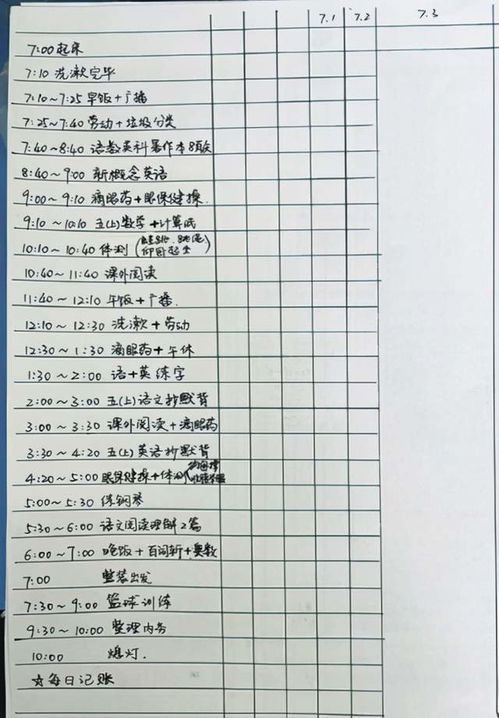 7.1 7.2 7.3
7:00 起床
7:10 洗漱完毕
7:10~7:25 早饭+广播
7:25~7:40 劳动+垃圾分类
7:40~8:40 语数英科暑作本8页
8:40~9:00 新概念英语
9:00~9:10 滴眼药+眼保健操
9:10~10:10 五(上)数学+计算纸
10:10~10:40 体测(跳绳 仰卧起坐)
10:40~11:40 课外阅读
11:40~12:10 午饭+广播.
12:10~12:30 洗漱+劳动
12:30~1:30 滴眼药+午休
1:30~2:00 语+英练字
2:00~3:00 五(上)语文抄默背
3:00~3:30 课外阅读+滴眼药
3:30~4:20 五(上)英语抄默背
4:20~5:00 眼保健操+体测
5:00~5:30 练钢琴
5:30~6:00 语文阅读理解2篇
6:00~7:00 晚饭+百词斩+奥数
7:00 整装出发
7:30~9:00 篮球训练
9:30~10:00 整理内务
10:00 熄灯.
☆每日记账